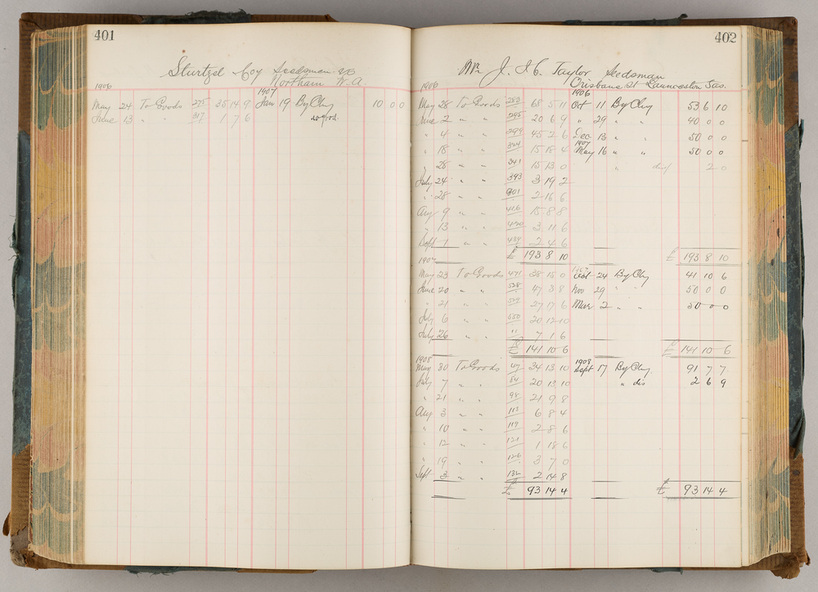 401
Sturtzel & Coy Seedsman
Northam W. A
1906 1907
May 24 To Goods 275 25 14 9 Jan 19 By Chq 10 0 0
June 13 " " 317 1 7 6
402
Mr J. J. C. Taylor Seedsman
Brisbane St Launceston Tas.
1906 1906
May 28 To Goods 283 68 5 11 Oct 11 By Chq 53 6 10
June 2 " " 295 20 6 9 " 29 " " 40 0 0
" 4 " " 299 45 2 6 Dec 13 " " 50 0 0
1907
" 18 " " 15 18 4 May 16 " " 50 0 0
" 25 " " 341 15 13 0 " dis 2 0
July 24 " " 393 3 19 2
" 28 " " 401 2 16 6
Aug 9 " " 15 8 8
" 13 " " 3 11 6
Sept 1 " " 2 4 6
£ 193 8 10 £ 193 8 10
1907
May 23 To Goods 38 15 0 Oct 24 By Chq 41 10 6
June 20 " " 47 3 8 Nov 29 " " 50 0 0
" 21 " " 27 17 6 Mar 2 " " 50 0 0
July 6 " " 20 12 10
July 26 " 7 1 6
£ 141 10 6 £ 141 10 6
1908 1908
May 30 To Goods 67 34 13 10 Sept 17 By Chq 91 7 7
July 7 " " 84 20 13 10 " dis 2 6 9
" 21 " " 98 21 9 8
Aug 3 " " 113 6 8 4
" 10 " " 119 2 8 6
" 12 " " 121 1 18 6
" 19 " " 126 3 7 0
Sept 3 " " 132 2 14 8
£ 93 14 4 £ 93 14 4